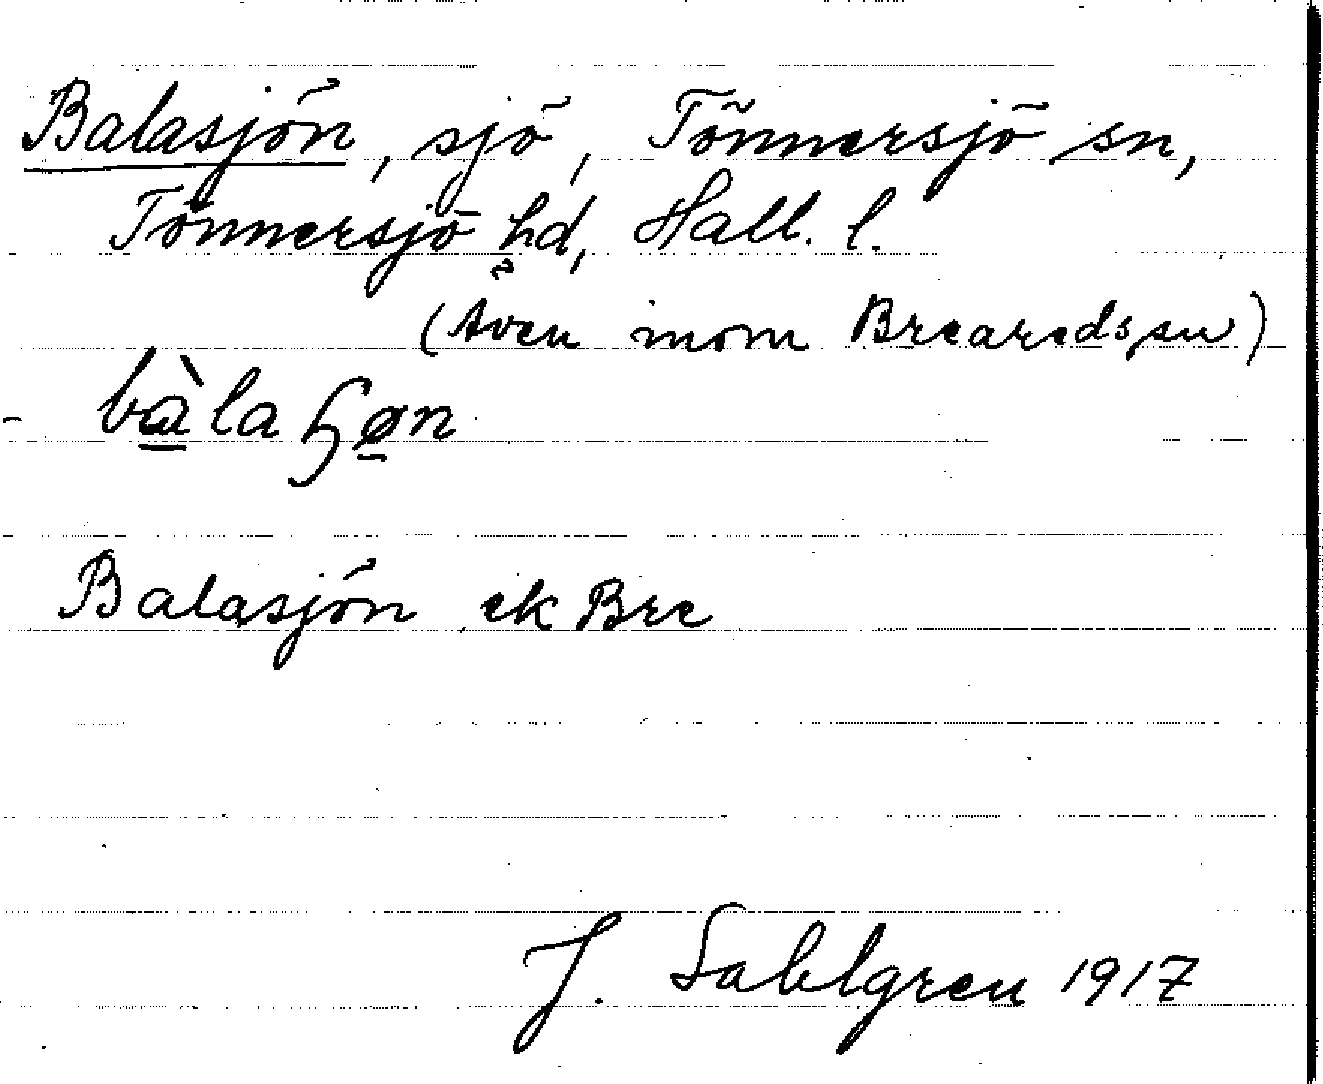 Balasjön, sjö, Tönnersjö sn,
Tönnersjö hd, Hall. l.
(Även inom Breareds sn)
bàla ɧøn
Balasjön ek Bre
J. Sahlgren 1917